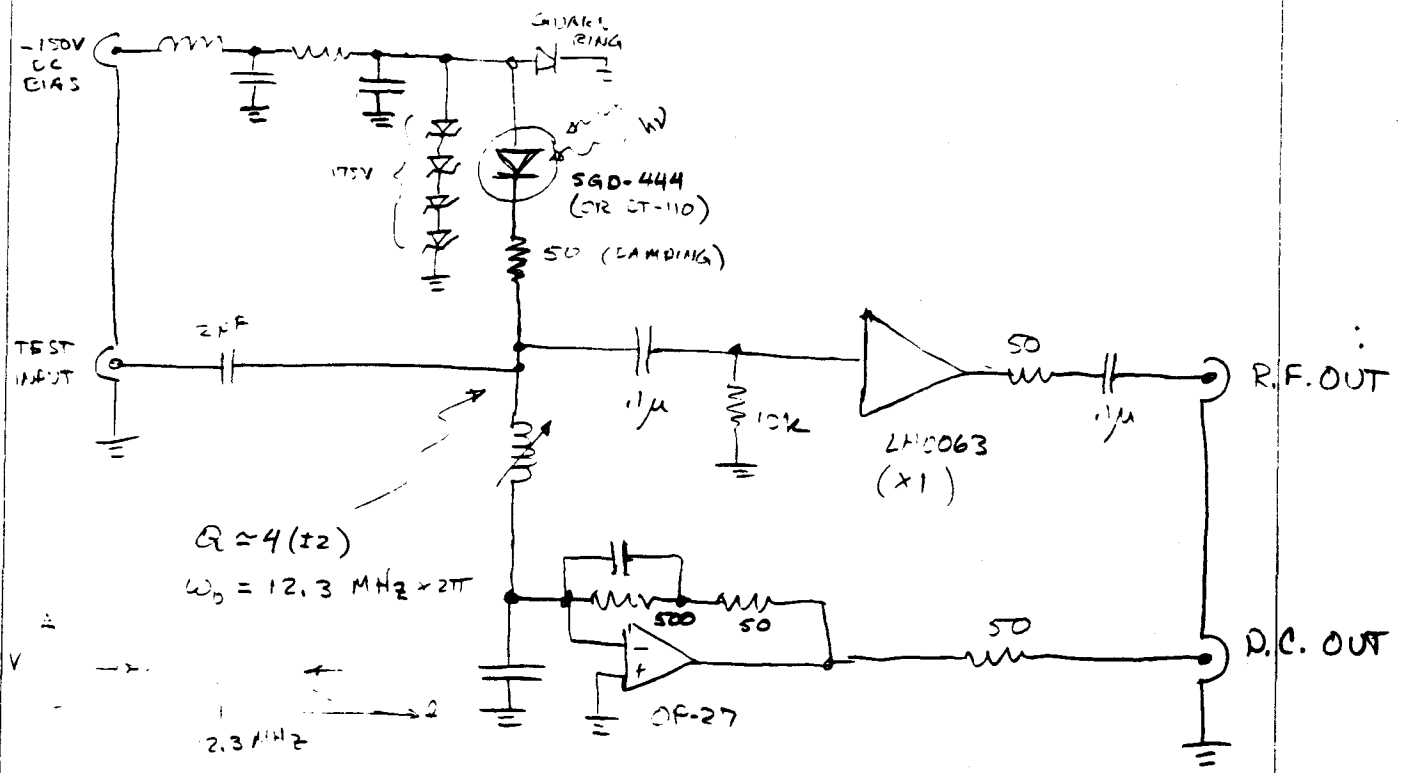 -150V
DC
BIAS
GUARD
RING
hν
175V
SGD-444
(OR UT-110)
50 (DAMPING)
2pF
TEST
INPUT
.1μ
10K
LH0063
(×1)
50
.1μ
R.F. OUT
Q ≃ 4 (±2)
ω₀ = 12.3 MHz × 2π
500
50
50
D.C. OUT
OP-27
V
2.3 MHz